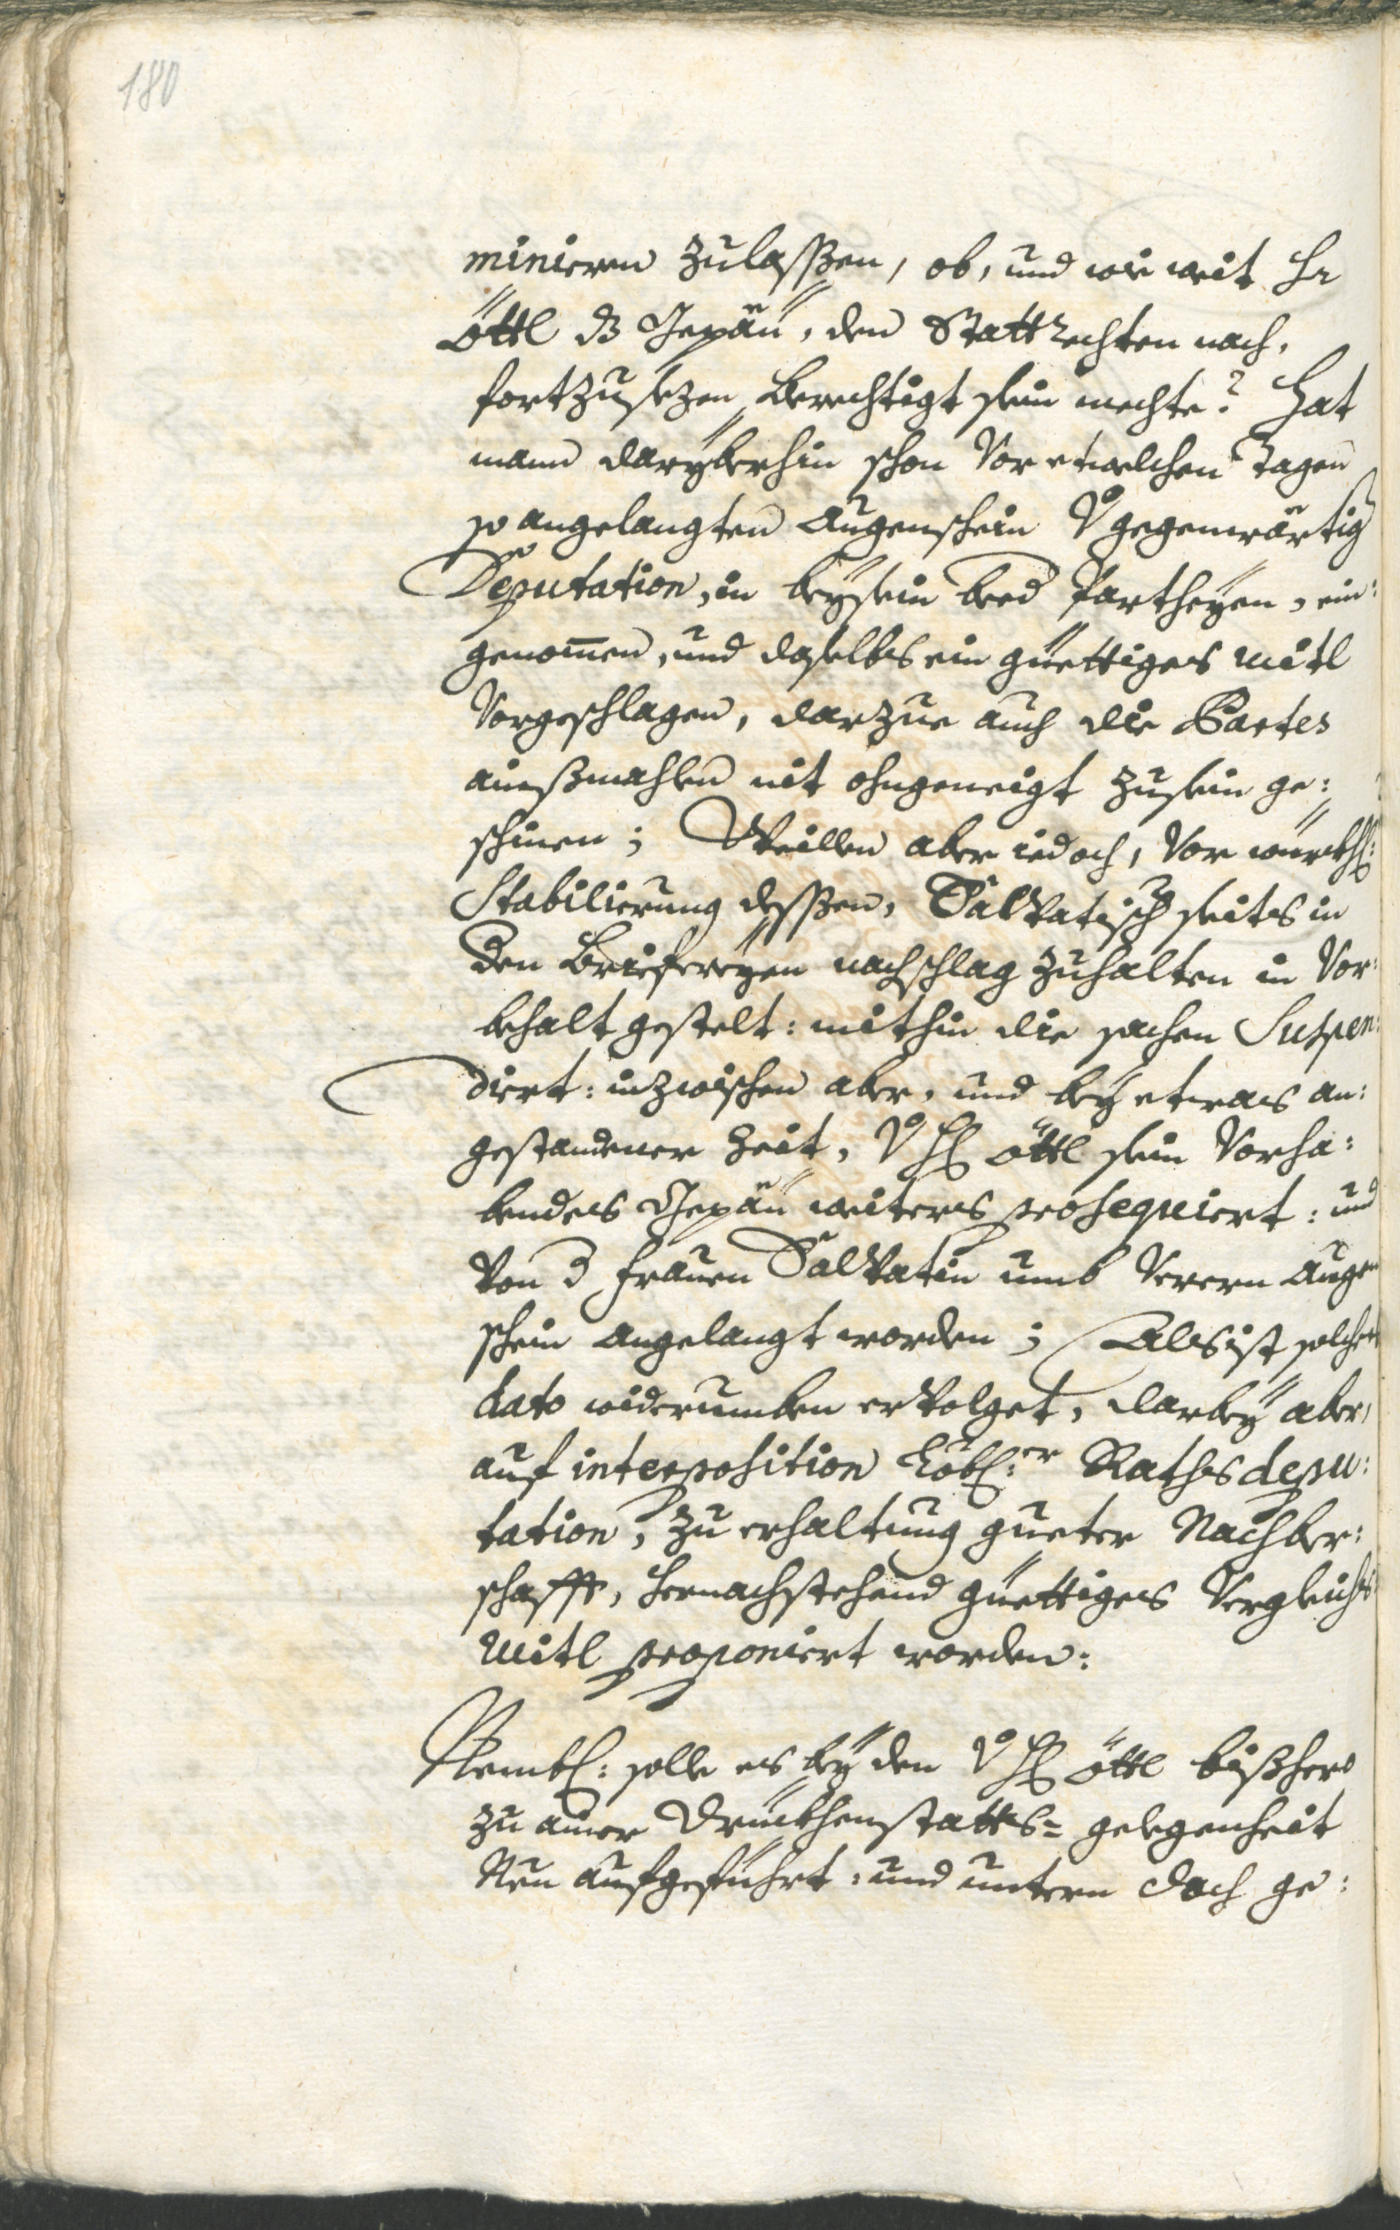 180
minieren zulassßen, ob, und wie weit Hr
Öttl dz Gepäu, den Statt Rechten nach,
fortzusezen berechtigt sein mechte? Hat
mann darÿberhin schon Vor etwelchen Tagen
so angelangten Augenschein gegenwärtig
Deputation, in beÿsein beed Partheÿen, ein:
genommen, und daselbs ein güettiges Mitl
Vorgeschlagen, darzue auch die Partes
ainßmahlen nit ohngeneigt zusein ge:
schinen; Weillen aber iedoch, Vor würckhl:
Stabilierung dessßen, Salvatisch seits in
den Briefereÿen nachschlag zuhalten in Vor:
behalt gestelt: mithin die sachen Suspen:
diert: inzwischen aber, und beÿ etwas an:
gestandener Zeit, Hl Öttl sein Vorha:
bendes Gepäu weiters prosequiert: und
Von d Frauen Salvatin umb Verern Augen
schein angelangt worden; Als ist solcher
dato widerumben ervolget, darbeÿ aber,
auf interposition Löbl:er Raths depu:
tation, zu erhaltung gueter Nachber:
schafft, hernachstehend güettiges Vergleichs
Mitl proponiert worden:
Nembl: solle es beÿ den Hl Öttl bißhero
zu ainer Druckhenstatts= gelegenheit
Neu aufgeführt: und untern Dach ge: